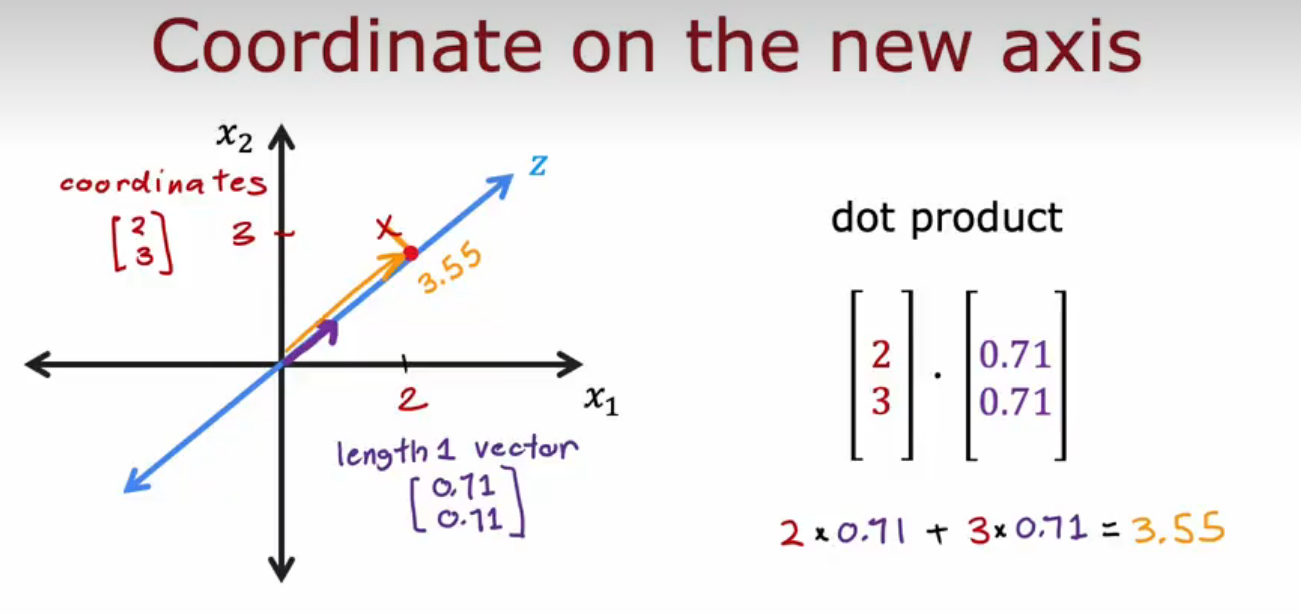 Coordinate on the new axis
x₂
z
coordinates
[2
3]
3
X
3.55
2
x₁
length 1 vector
[0.71
0.71]
dot product
[2
3] · [0.71
0.71]
2 × 0.71 + 3 × 0.71 = 3.55